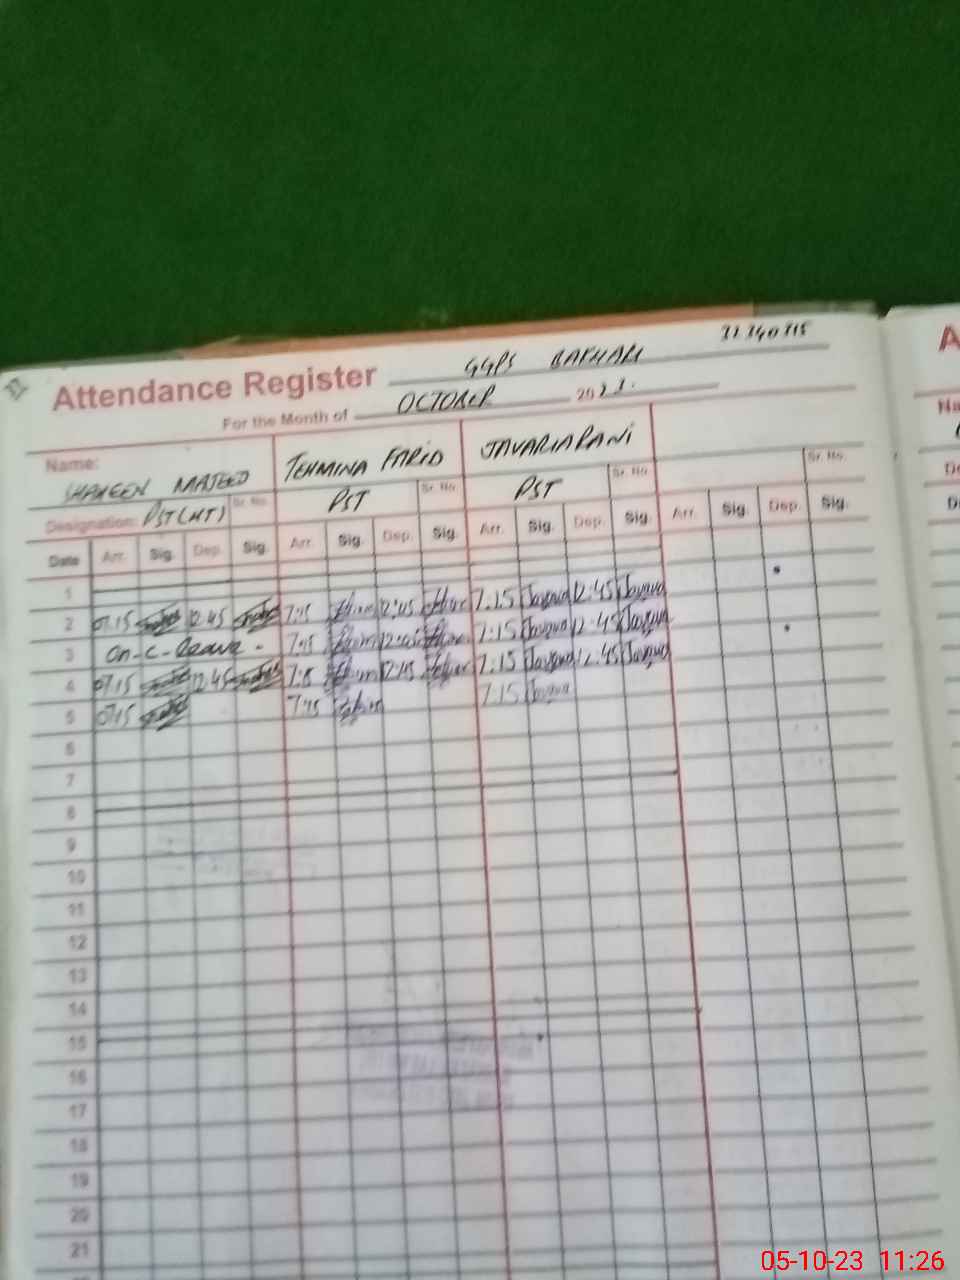 31340815
Attendance Register GGPS BAKHARI
For the Month of OCTOBER 2023.
Name: SHAHEEN MAJEED TEHMINA FARID JAVARIA RANI
Designation: PST(HT) Sr. No. PST Sr. No. PST Sr. No. Sr. No.
Date Arr. Sig. Dep. Sig. Arr. Sig. Dep. Sig. Arr. Sig. Dep. Sig. Arr. Sig. Dep. Sig.
1
2 07:15 12:45 7:15 12:45 7:15 12:45
3 on-c-leave. 7:15 7:15 12:45
4 07:15 12:45 7:15 12:45 7:15 12:45
5 07:15 7:15 7:15
6
7
8
9
10
11
12
13
14
15
16
17
18
19
20
21
A
Na
De
D
05-10-23 11:26